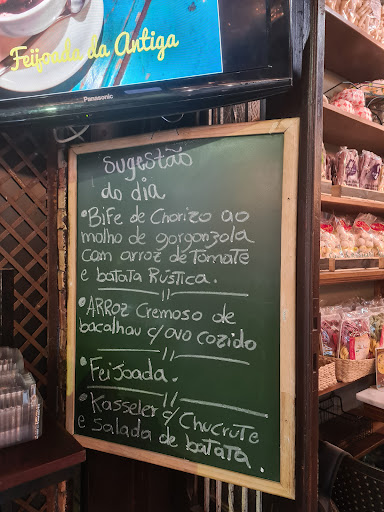 Feijoada da Antiga
Panasonic
Sugestão
do dia
• Bife de Chorizo ao
molho de gorgonzola
com arroz de tomate
e batata Rústica.
• ARROZ Cremoso de
bacalhau c/ ovo cozido
• Feijoada.
• Kasseler c/ Chucrute
e Salada de batata.